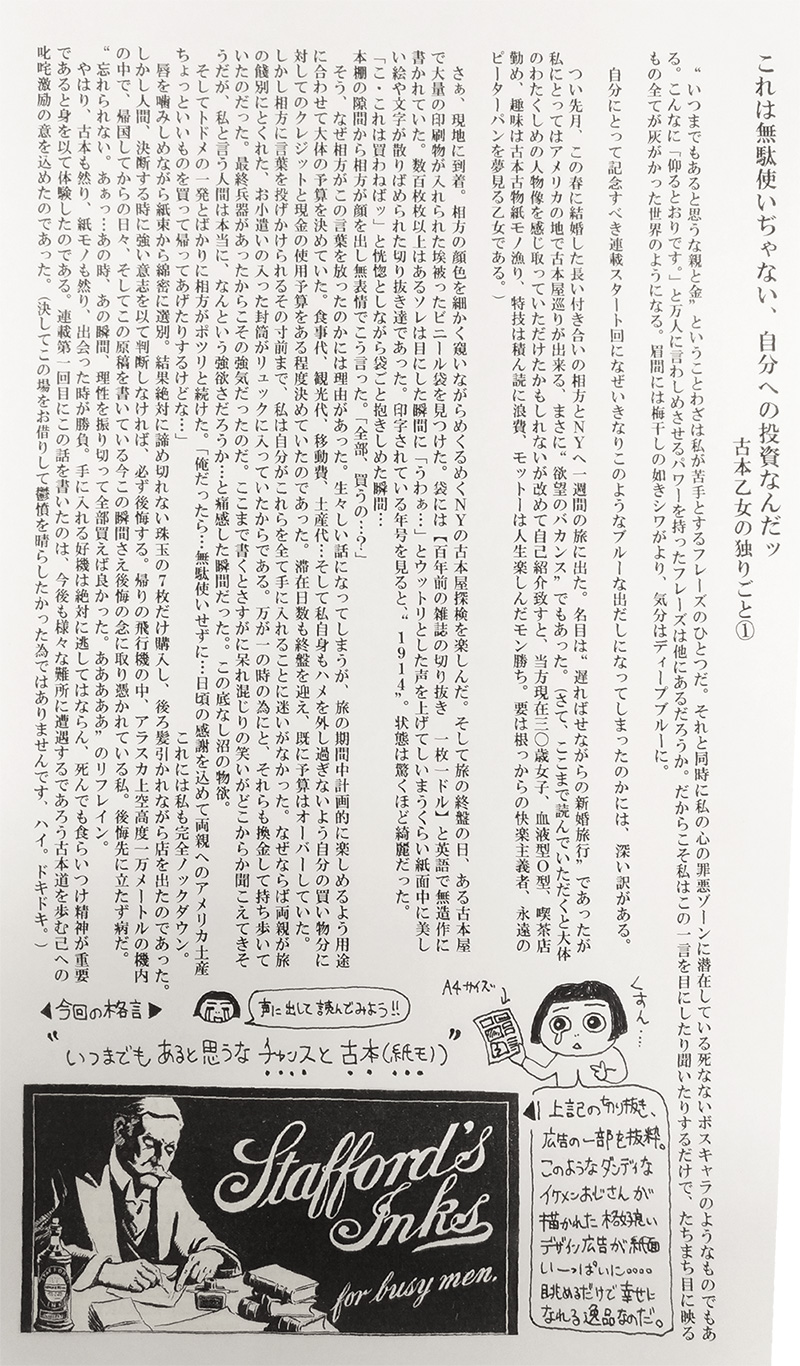 これは無駄使いぢゃない、自分への投資なんだッ
古本乙女の独りごと①
“いつまでもあると思うな親と金”ということわざは私が苦手とするフレーズのひとつだ。それと同時に私の心の罪悪ゾーンに潜在している死なないボスキャラのようなものでもあ
る。こんなに「仰るとおりです。」と万人に言わしめさせるパワーを持ったフレーズは他にあるだろうか。だからこそ私はこの一言を目にしたり聞いたりするだけで、たちまち目に映る
もの全てが灰がかった世界のようになる。眉間には梅干しの如きシワがより、気分はディープブルーに。
自分にとって記念すべき連載スタート回になぜいきなりこのようなブルーな出だしになってしまったのかには、深い訳がある。
つい先月、この春に結婚した長い付き合いの相方とNYへ一週間の旅に出た。名目は“遅ればせながらの新婚旅行”であったが
私にとってはアメリカの地で古本屋巡りが出来る、まさに“欲望のバカンス”でもあった。（さて、ここまで読んでいただくと大体
のわたくしめの人物像を感じ取っていただけたかもしれないが改めて自己紹介致すと、当方現在三〇歳女子、血液型O型、喫茶店
勤め、趣味は古本古物紙モノ漁り、特技は積ん読に浪費、モットーは人生楽しんだモン勝ち。要は根っからの快楽主義者、永遠の
ピーターパンを夢見る乙女である。）
さぁ、現地に到着。相方の顔色を細かく窺いながらめくるめくNYの古本屋探検を楽しんだ。そして旅の終盤の日、ある古本屋
で大量の印刷物が入れられた埃被ったビニール袋を見つけた。袋には【百年前の雑誌の切り抜き　一枚一ドル】と英語で無造作に
書かれていた。数百枚枚以上はあるソレは目にした瞬間に「うわぁ…」とウットリとした声を上げてしまいまうくらい紙面中に美し
い絵や文字が散りばめられた切り抜き達であった。印字されている年号を見ると、“1914”。状態は驚くほど綺麗だった。
「こ・これは買わねばッ」と恍惚としながら袋ごと抱きしめた瞬間…
本棚の隙間から相方が顔を出し無表情でこう言った。「全部、買うの…？」
そう、なぜ相方がこの言葉を放ったのかには理由があった。生々しい話になってしまうが、旅の期間中計画的に楽しめるよう用途
に合わせて大体の予算を決めていた。食事代、観光代、移動費、土産代…そして私自身もハメを外し過ぎないよう自分の買い物分に
対してのクレジットと現金の使用予算をある程度決めていたのであった。滞在日数も終盤を迎え、既に予算はオーバーしていた。
しかし相方に言葉を投げかけられるその寸前まで、私は自分がこれらを全て手に入れることに迷いがなかった。なぜならば両親が旅
の餞別にとくれた、お小遣いの入った封筒がリュックに入っていたからである。万が一の時の為にと、それらも換金して持ち歩いて
いたのだった。最終兵器があったからこその強気だったのだ。ここまで書くとさすがに呆れ混じりの笑いがどこからか聞こえてきそ
うだが、私と言う人間は本当に、なんという強欲さだろうか…と痛感した瞬間だった。。この底なし沼の物欲。
そしてトドメの一発とばかりに相方がポツリと続けた。「俺だったら…無駄使いせずに…日頃の感謝を込めて両親へのアメリカ土産
ちょっといいものを買って帰ってあげたりするけどな…」
これには私も完全ノックダウン。
唇を噛みしめながら紙束から綿密に選別。結果絶対に諦め切れない珠玉の７枚だけ購入し、後ろ髪引かれながら店を出たのであった。
しかし人間、決断する時に強い意志を以て判断しなければ、必ず後悔する。帰りの飛行機の中、アラスカ上空高度一万メートルの機内
の中で、帰国してからの日々、そしてこの原稿を書いている今この瞬間さえ後悔の念に取り憑かれている私。後悔先に立たず病だ。
“忘れられない。あぁっ…あの時、あの瞬間、理性を振り切って全部買えば良かった。あああああ”のリフレイン。
やはり、古本も然り、紙モノも然り、出会った時が勝負。手に入れる好機は絶対に逃してはならん、死んでも食らいつけ精神が重要
であると身を以て体験したのである。連載第一回目にこの話を書いたのは、今後も様々な難所に遭遇するであろう古本道を歩む己への
叱咤激励の意を込めたのであった。（決してこの場をお借りして鬱憤を晴らしたかった為ではありませんです、ハイ。ドキドキ。）
くすん…
A4サイズ
◀今回の格言▶
声に出して読んでみよう!!
“いつまでも あると思うな チャンスと 古本（紙モノ）”
上記の切り抜き、
広告の一部を抜粋。
このようなダンディな
イケメンおじさんが
描かれた格好良い
デザイン広告が紙面
いーっぱいに。。。。
眺めるだけで幸せに
なれる逸品なのだ。
Stafford's
Inks
for busy men.